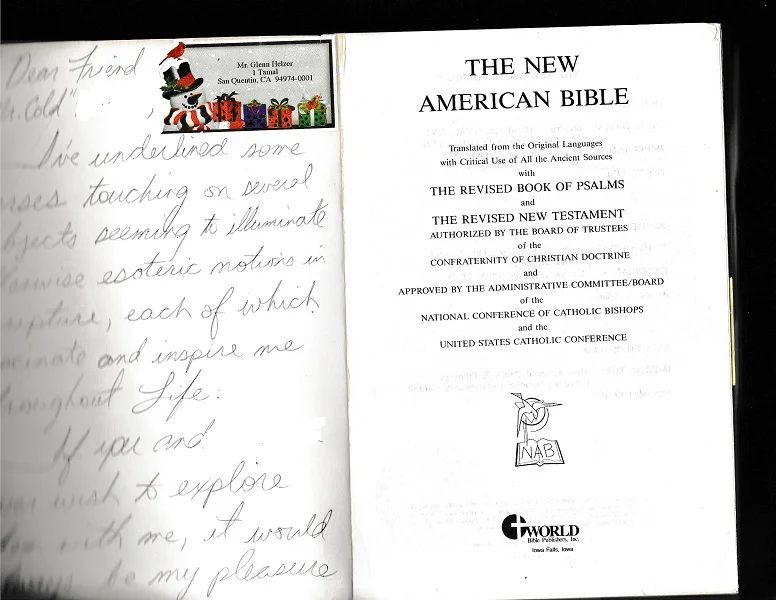 Dear Friend
Cold"
,
Mr. Glenn Helzer
1 Tamal
San Quentin, CA 94974-0001
I've underlined some
touching on several
seeming to illuminate
esoteric notions in
, each of which
and inspire me
Life.
If you and
wish to explore
with me, it would
be my pleasure
THE NEW
AMERICAN BIBLE
Translated from the Original Languages
with Critical Use of All the Ancient Sources
with
THE REVISED BOOK OF PSALMS
and
THE REVISED NEW TESTAMENT
AUTHORIZED BY THE BOARD OF TRUSTEES
of the
CONFRATERNITY OF CHRISTIAN DOCTRINE
and
APPROVED BY THE ADMINISTRATIVE COMMITTEE/BOARD
of the
NATIONAL CONFERENCE OF CATHOLIC BISHOPS
and the
UNITED STATES CATHOLIC CONFERENCE
NAB
WORLD
Bible Publishers, Inc.
Iowa Falls, Iowa